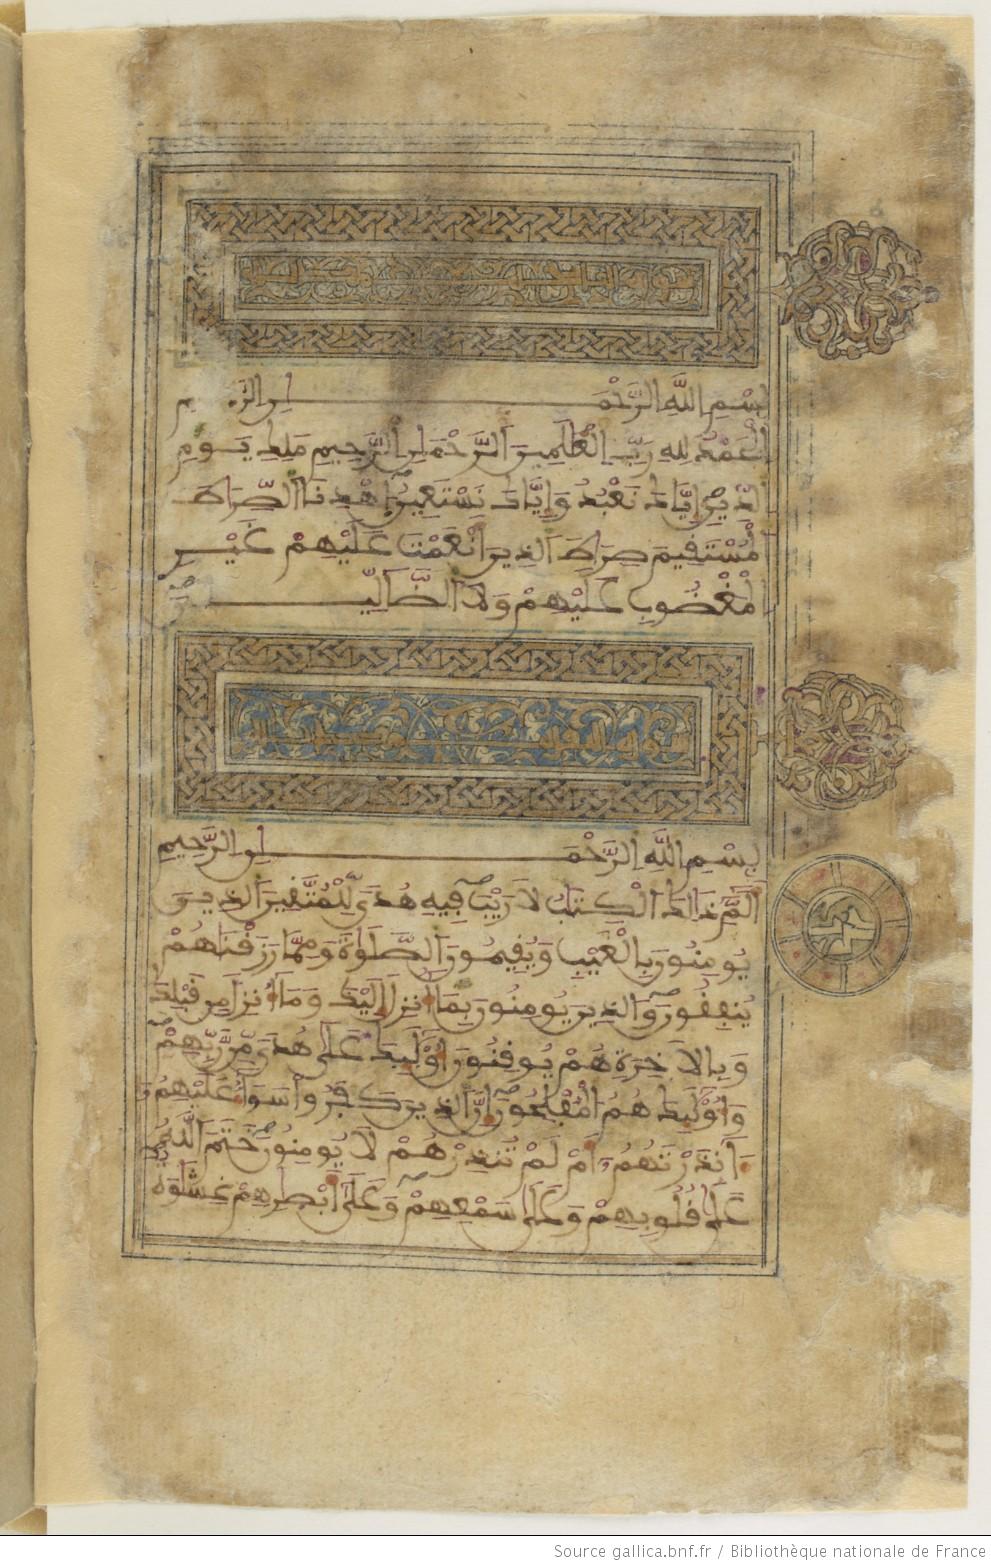 بِسْمِ اللَّهِ الرَّحْمَٰنِ الرَّحِيمِ
الْحَمْدُ لِلهِ رَبِّ الْعَٰلَمِينَ الرَّحْمَٰنِ الرَّحِيمِ مَلِكِ يَوْمِ
الدِّينِ إِيَّاكَ نَعْبُدُ وَإِيَّاكَ نَسْتَعِينُ اهْدِنَا الصِّرَاطَ
الْمُسْتَقِيمَ صِرَاطَ الَّذِينَ أَنْعَمْتَ عَلَيْهِمْ غَيْرِ
الْمَغْضُوبِ عَلَيْهِمْ وَلَا الضَّالِّينَ
بِسْمِ اللَّهِ الرَّحْمَٰنِ الرَّحِيمِ
الَمِّ ذَٰلِكَ الْكِتَٰبُ لَا رَيْبَ فِيهِ هُدًى لِّلْمُتَّقِينَ الَّذِينَ
يُومِنُونَ بِالْغَيْبِ وَيُقِيمُونَ الصَّلَوٰةَ وَمِمَّا رَزَقْنَاهُمْ
يُنفِقُونَ وَالَّذِينَ يُومِنُونَ بِمَا أُنزِلَ إِلَيْكَ وَمَا أُنزِلَ مِن قَبْلِكَ
وَبِالَاخِرَةِ هُمْ يُوقِنُونَ أُوْلَٰئِكَ عَلَىٰ هُدًى مِّن رَّبِّهِمْ
وَأُوْلَٰئِكَ هُمُ الْمُفْلِحُونَ إِنَّ الَّذِينَ كَفَرُوا سَوَاءٌ عَلَيْهِمُ
ءَأَنذَرْتَهُمُ أَمْ لَمْ تُنذِرْهُمْ لَا يُومِنُونَ خَتَمَ اللَّهُ
عَلَىٰ قُلُوبِهِمْ وَعَلَىٰ سَمْعِهِمْ وَعَلَىٰ أَبْصَٰرِهِمْ غِشَٰوَةٌ
Source gallica.bnf.fr / Bibliothèque nationale de France